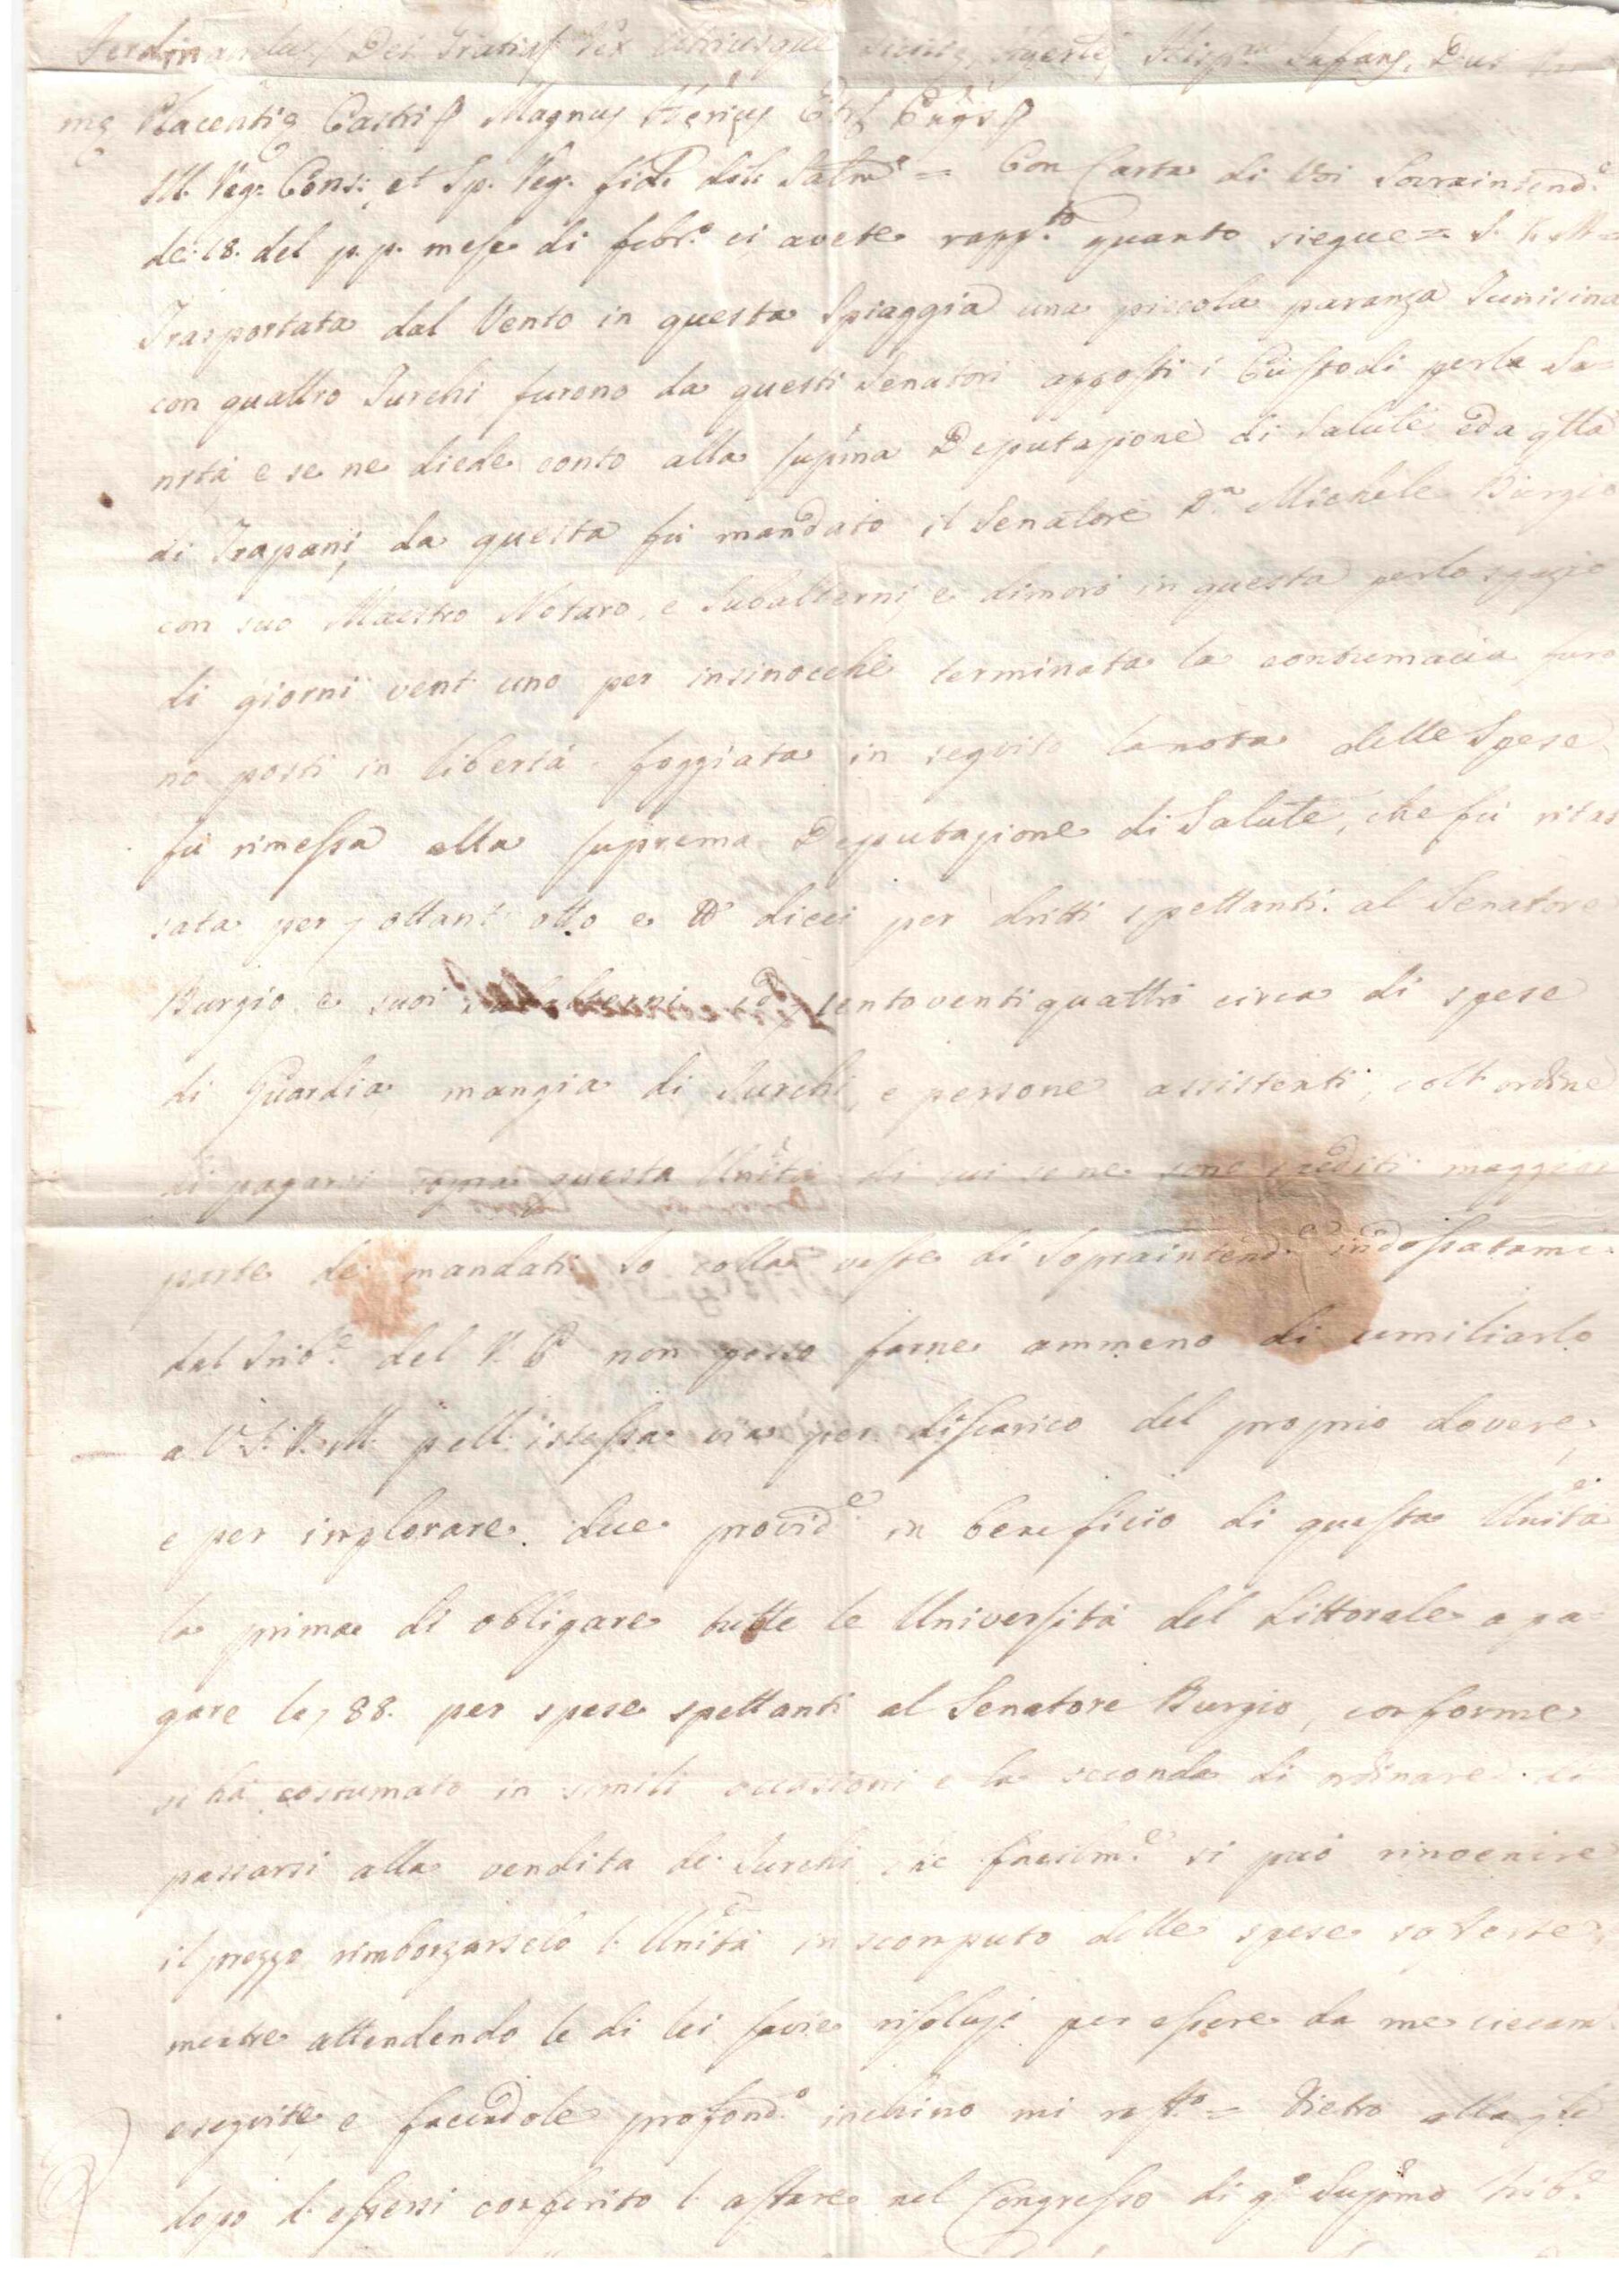 Ferdinandus Dei Gratia Rex Utriusque Hisp. Infans, Dux
Placentie Castri Magnus
Reg. Cons: et Sp. Reg. fid. = Con Carta di Voi Sovraintend.e
de: 18. del p.p. mese di febr.o ci avete rapp.to quanto siegue = S. R. M. =
Trasportata dal Vento in questa Spiaggia una piccola paranza Tunisina
con quattro Turchi furono da questi Senatori apposti i Custodi per la Sa=
nità e se ne diede conto alla suprma Deputazione di Salute ed a qlla
di Trapani, da questa fù mandato il Senatore D.n Michele Burgio
con suo Maestro Notaro, e Subalterni, e dimorò in questa per lo spazio
di giorni vent'uno per insinocchè terminata la contumacia furo
no posti in libertà foggiata in seguito la nota delle Spese
fù rimessa alla suprema Deputazione di Salute, che fù ritas
sata per ottant'otto e dieci per dritti spettanti al Senatore
Burgio e suoi subalterni ed cento venti quattro circa di spese
di Guardia mangia di Turchi, e persone assistenti, coll'ordine
di pagarsi sopra questa Unità di cui se ne sono spediti maggior
parte de mandati Io colla veste di Sopraintend.e indossatami
dal Trib.e del R. P. non posso farne ammeno di umiliarlo
a V. S. R. M. pell'istessa via per discarico del proprio dovere,
e per implorare due provid.e in beneficio di questa Unità
la prima di obligare tutte le Università del Littorale a pa=
gare le 88. per spese spettanti al Senatore Burgio, conforme
si hà costumato in simili occasioni e la seconda di ordinare di
passarsi alla vendita de Turchi che facilm.e si può rinvenire
il prezzo rimborzarselo l'Unità in scomputo delle spese sofferte
mentre attendendo le di lei savie risoluzi per essere da me ciecam.
eseguite e facendole profond.o inchino mi rest.o = Dietro alla qle
dopo d'essersi conferito l'affare nel Congresso di q.o Supmo Trib.e